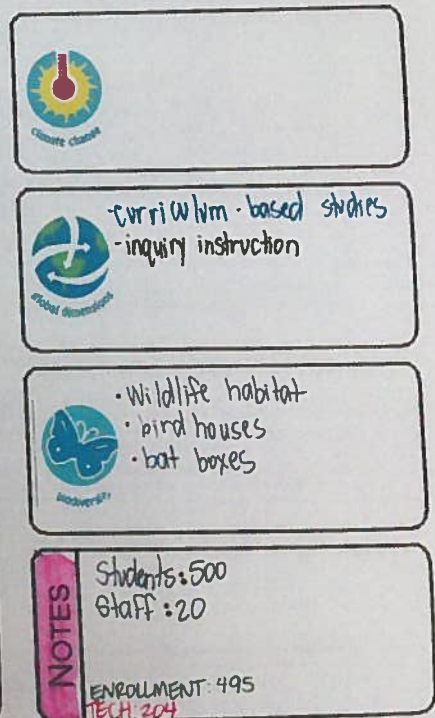 climate change
-curriculum-based studies
-inquiry instruction
global dimensions
• Wildlife habitat
• bird houses
• bat boxes
biodiversity
NOTES
Students: 500
Staff: 20
ENROLLMENT: 495
TECH: 204